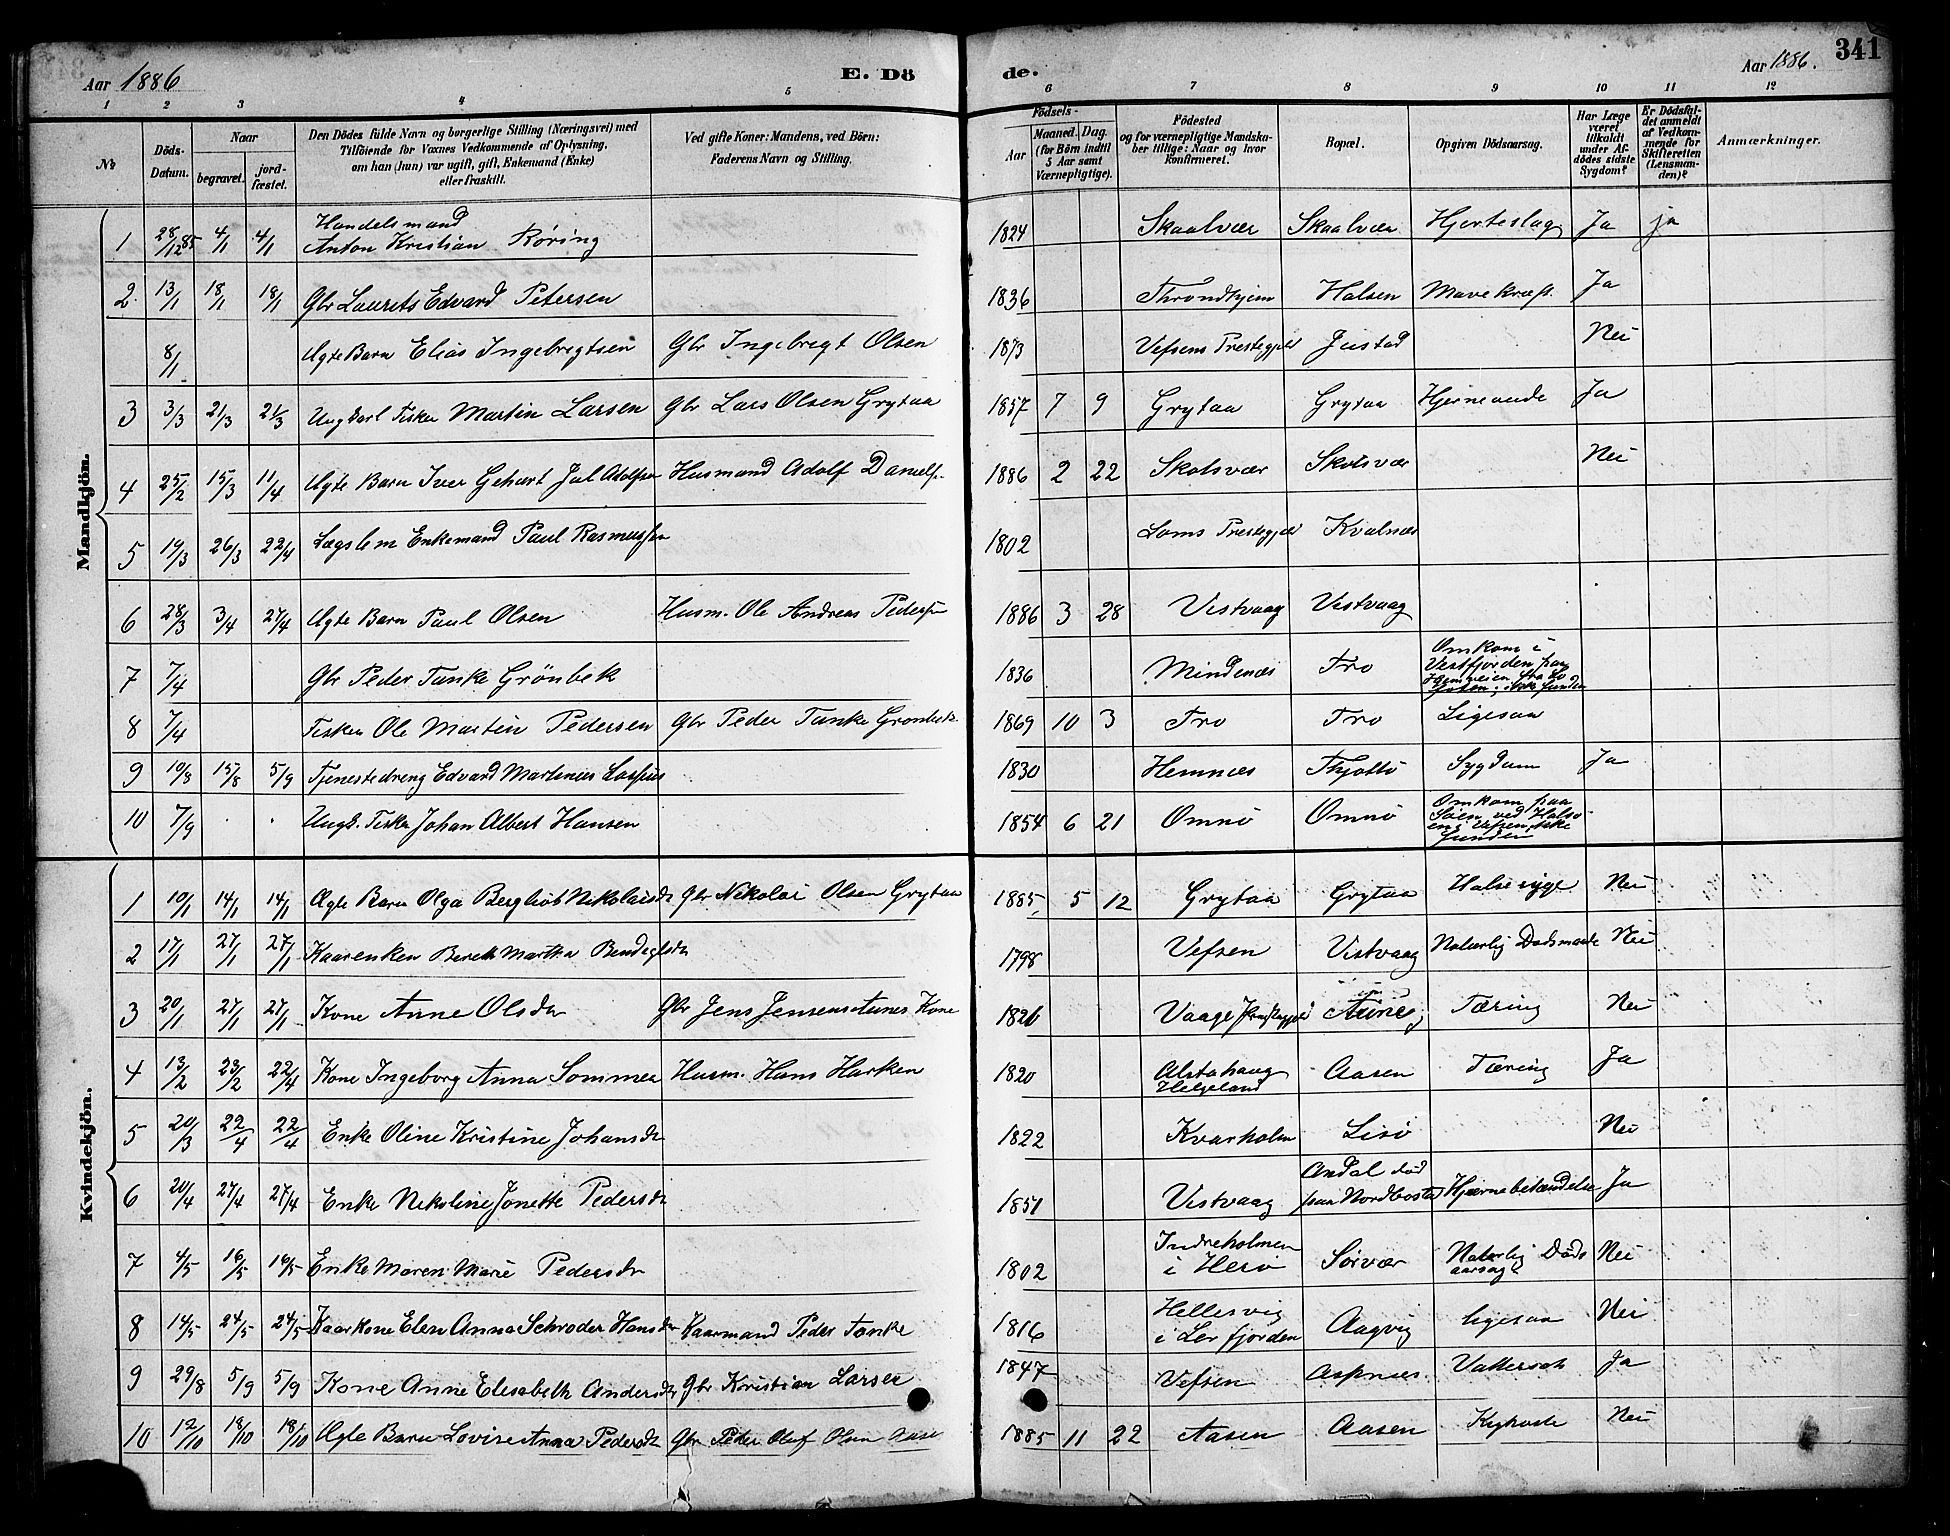 Aar 1886 E. Dö de. Aar 1886. 341
1 2 3 4 5 6 7 8 9 10 11 12
No
Döds-Datum.
Naar
begravet.
jord-fæstet.
Den Dödes fulde Navn og borgerlige Stilling (Næringsvei) med
Tilföiende for Voxnes Vedkommende af Oplysning,
om han (hun) var ugift, gift, Enkemand (Enke)
eller fraskilt.
Ved gifte Koner: Mandens, ved Börn:
Faderens Navn og Stilling.
Födsels-
Aar
Maaned. Dag.
(for Börn indtil
5 Aar samt
Værnepligtige).
Födested
og for værnepligtige Mandska-
ber tillige: Naar og hvor
Konfirmeret.
Bopæl.
Opgiven Dödsaarsag.
Har Læge
været
tilkaldt
under Af-
dödes sidste
Sygdom?
Er Dödsfal-
det anmeldt
af Vedkom-
mende for
Skifteretten
(Lensman-
den)?
Anmærkninger.
Mandkjön.
1 28/12 85 4/1 4/1 Handelsmand
Anton Kristian Röring 1824 Skaalvær Skaalvær Hjerteslag Ja ja
2. 13/1 18/1 18/1 Gbr Laurits Edvard Petersen 1836 Throndhjem Halsen Mavekræft. Ja
8/1 Ægte Barn Elias Ingebrigtsen Gbr Ingebrigt Olsen 1873 Vefsens Prestegjeld Justad Nei
3 3/3 21/3 21/3 Ungkarl Fisker Martin Larsen Gbr Lars Olsen Grytaa 1857 7 9 Grytaa Grytaa Hjerneonde Ja
4 25/2 15/3 11/4 Ægte Barn Iver Gehart Jul Adolfsen Husmand Adolf Danielsen 1886 2 22 Skotsvær Skotsvær Nei
5 19/3 26/3 22/4 Lægslem Enkemand Paul Rasmussen 1802 Loms Prestegjeld Kvalnæs
6 28/3 3/4 27/4 Ægte Barn Paul Olsen Husm. Ole Andreas Pedersen 1886 3 28 Vistvaag Vistvaag
7 7/4 Gbr Peder Tanke Grönbek 1836 Mindenæs Tro Omkom i
Vestfjorden paa
Hjemveien fra Lo
foten; ikke funden
8 7/4 Fisker Ole Martin Pedersen Gbr Peder Tanke Grönbek 1869 10 3 Tro Tro Ligesaa
9 10/8 15/8 5/9 Tjenestedreng Edvard Martinius 1830 Hemnæs Thjøttö Sygdom Ja
10 7/9 . . Ungk. Fisker Johan Albert Hansen 1854 6 21 Omnö Omnö Omkom paa
Söen ved Halsö-
en i Vefsen, ikke
funden
Kvindekjön.
1 10/1 14/1 14/1 Ægte Barn Olga Bergliot Nikolaisdr Gbr Nikolai Olsen Grytaa 1885 5 12 Grytaa Grytaa Halssyge Nei
2 17/1 27/1 27/1 Kaarenken Bereth Martha 1798 Vefsen Vistvaag Naturlig Dödsmaade Nei
3 20/1 27/1 27/1 Kone Anne Olsdr Gbr Jens Jensens Aunes Kone 1821 Vaage Prestegjeld Aunes Tæring Nei
4 13/2 23/2 22/4 Kone Ingeborg Anna Sommer Husm. Hans Harken 1820 Alstahaug
Helgeland Aasen Tæring Ja
5 20/3 22/4 22/4 Enke Oline Kristine Johansdr 1822 Kvarholm Lisö Nei
6 20/4 27/4 27/4 Enke Nikoline Jonette Pedersdr 1851 Vistvaag Andal död
paa Nordbostad Hjernebetændelse Ja
7 4/5 16/5 16/5 Enke Maren Marie Pedersdr 1802 Indreholmen
i Herö Sörvær Naturlig Döds
aarsag Nei
8 14/5 24/5 24/5 Kaarkone Elen Anna Schröder Hansdr Kaarmand Peder Tanke 1816 Hellesvig
i Lerfjorden Aagvig ligesaa Nei
9 29/8 5/9 5/9 Kone Anne Elisabeth Andersdr Gbr Kristian Larsen 1847 Vefsen Aspnæs. Vattersot Ja
10 12/10 18/10 18/10 Ægte Barn Lovise Anna Pedersdr Gbr Peder Oluf Olsen Aase 1885 11 22 Aasen Aasen Kighoste Nei